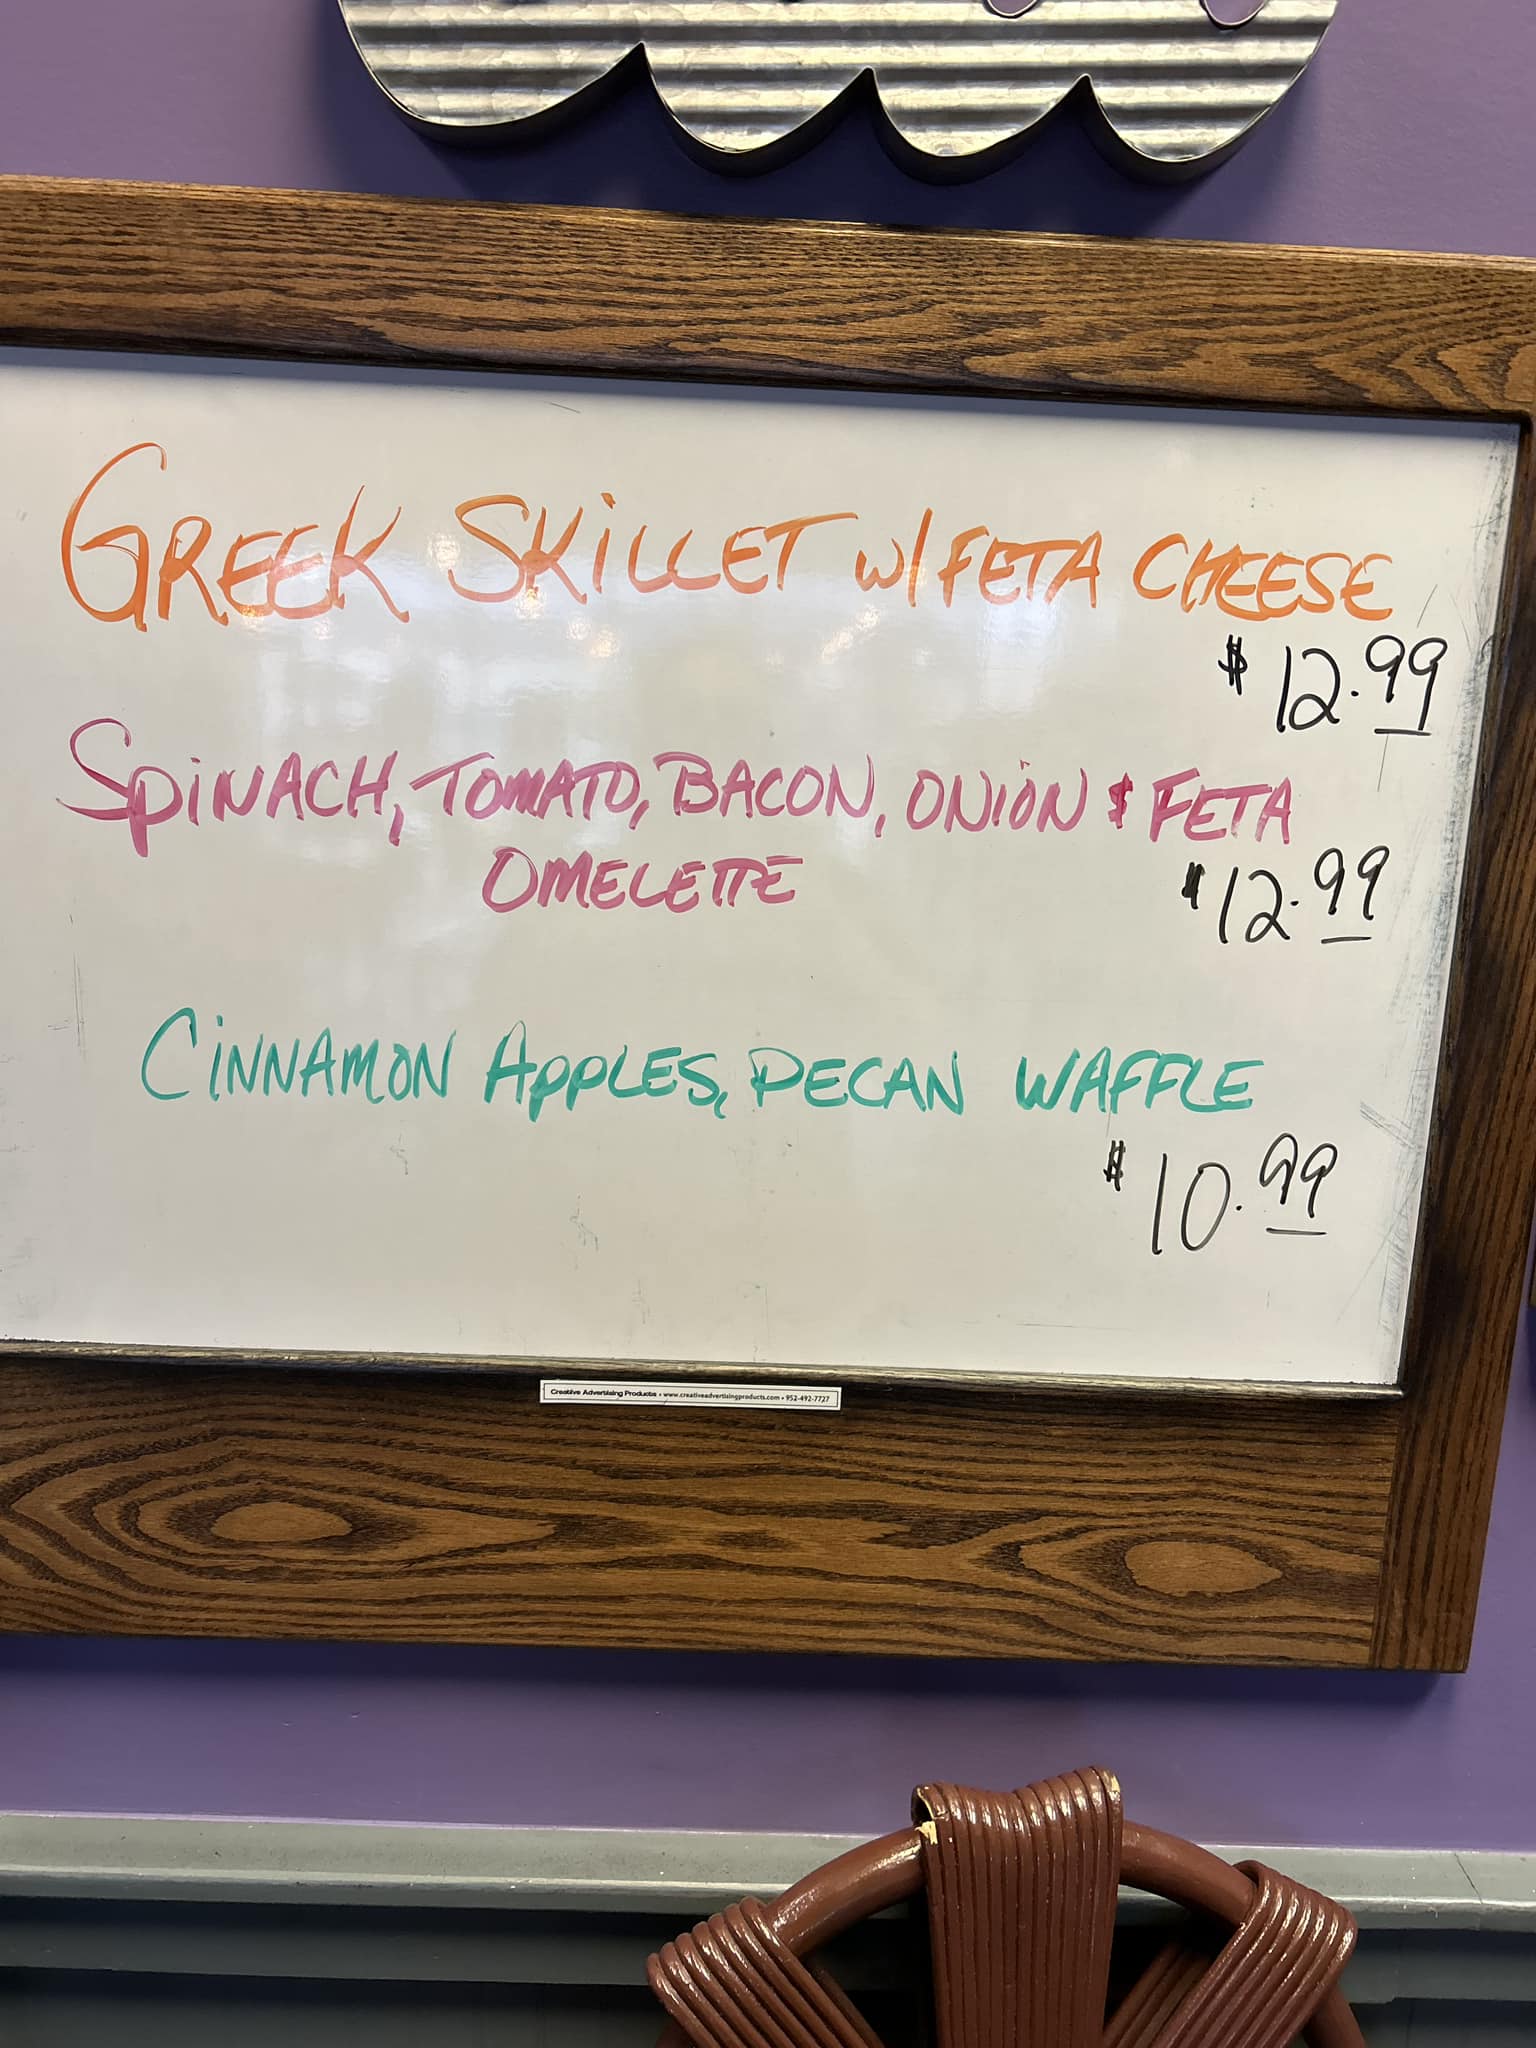 GREEK SKiLLET w/ FETA CHEESE
$12.99
SPiNACH, TOMATO, BACON, ONiON & FETA
OMELETTE $12.99
CiNNAMON APPLES, PECAN WAFFLE
$10.99
Creative Advertising Products • www.creativeadvertisingproducts.com • 952-492-7727